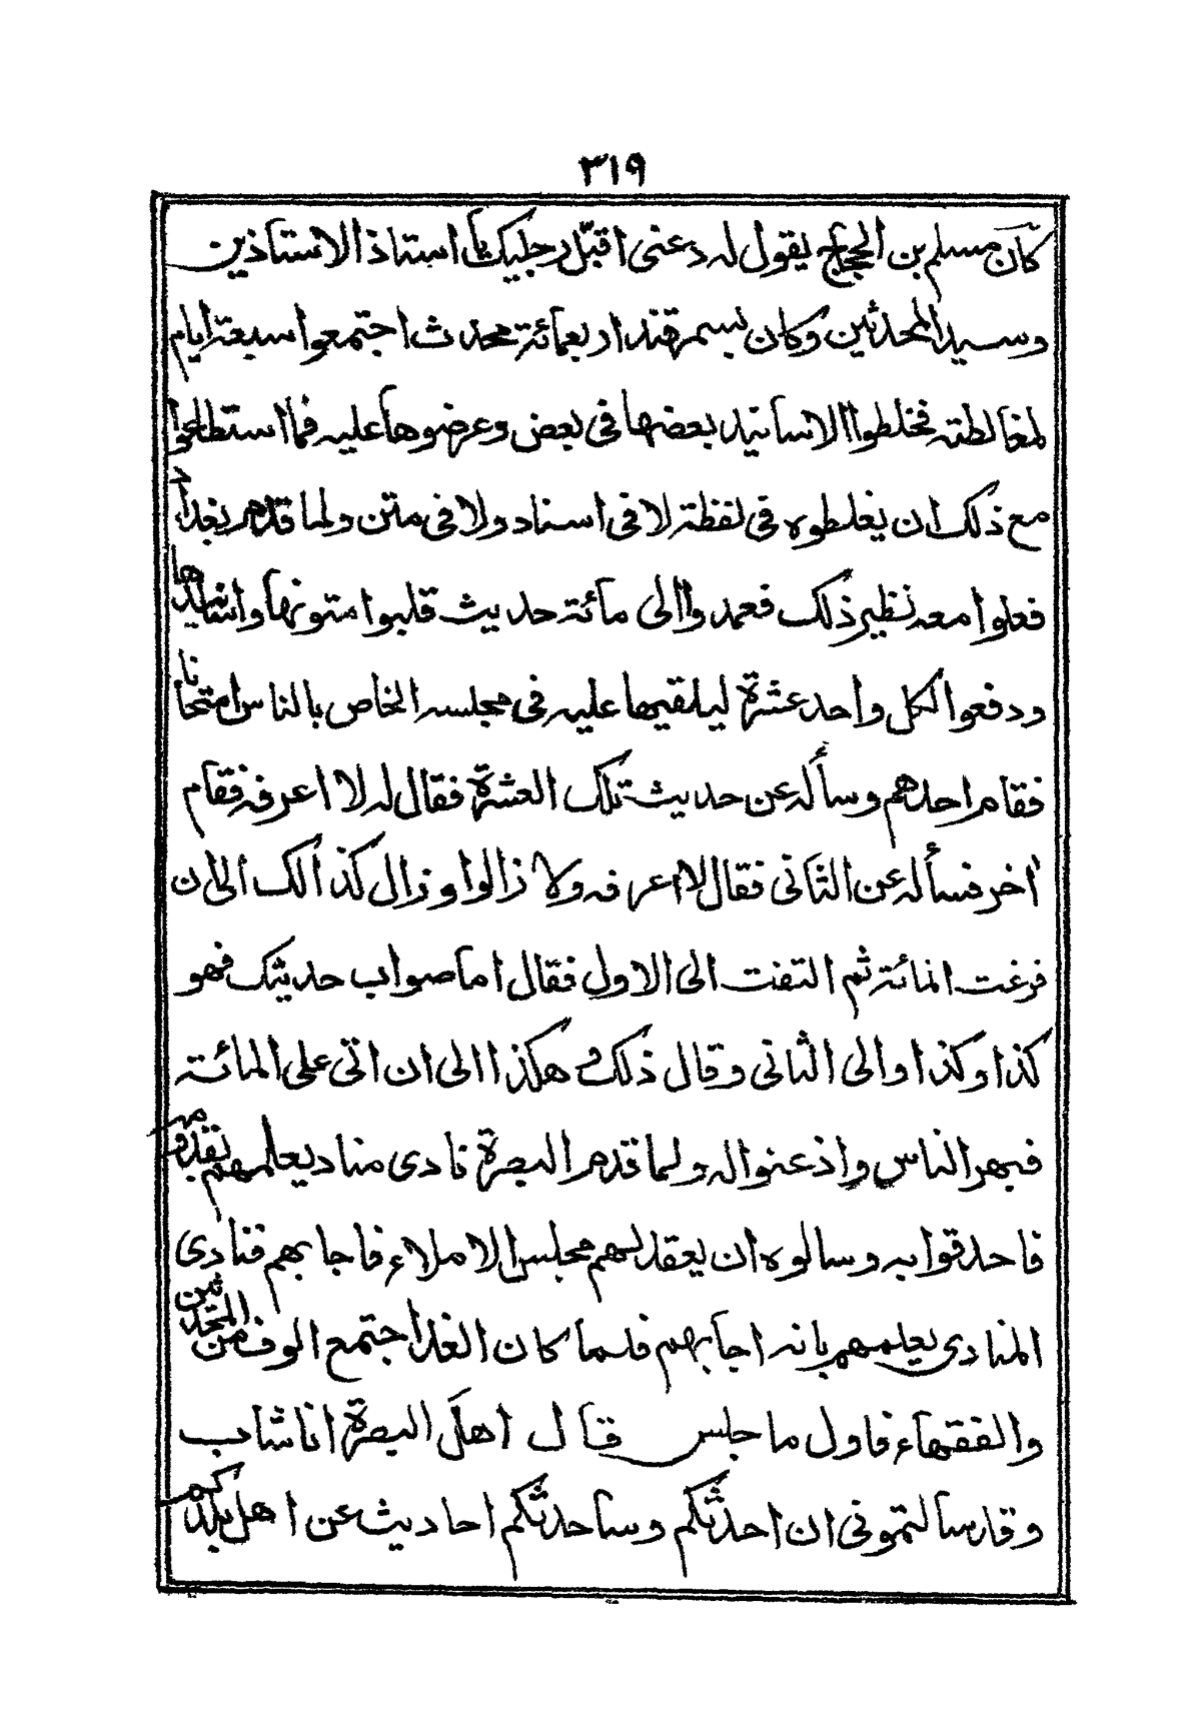 ٣١٩
كان مسلم بن الحجاج يقول له دعنى اقبّل رجليك يا استاذ الاستاذين
وسيد المحدثين وكان بسمرقند اربعمائة محدث اجتمعوا سبعة ايام
لمغالطته فخلطوا الاسانيد بعضها فى بعض وعرضوها عليه فما استطاعوا
مع ذلك ان يغلطوه فى لفظة لا فى اسناد ولا فى متن ولما قدم بغداد
فعلوا معه نظير ذلك فعمدوا الى مائة حديث قلبوا متونها واسانيدها
ودفعوا لكل واحد عشرة ليلقيها عليه فى مجلسه الخاص بالناس امتحانا
فقام احدهم وسأله عن حديث تلك العشرة فقال له لا اعرفه فقام
اخر فسأله عن الثانى فقال لا اعرفه ولا زالوا وزال كذالك الى ان
فرغت المائة ثم التفت الى الاول فقال اما صواب حديثك فهو
كذا وكذا والى الثانى وقال ذلك وهكذا الى ان اتى على المائة
فبهر الناس واذعنوا له ولما قدم البصرة نادى مناد يعلمهم بقدومه
فاحدقوا به وسالوه ان يعقد لهم مجلس الاملاء فاجابهم فنادى
المنادى يعلمهم بانه اجابهم فلما كان الغد اجتمع الوف من المحدثين
والفقهاء فاول ما جلس قال اهل البصرة انا شاب
وقد سالتمونى ان احدثكم وساحدثكم احاديث عن اهل بلدكم